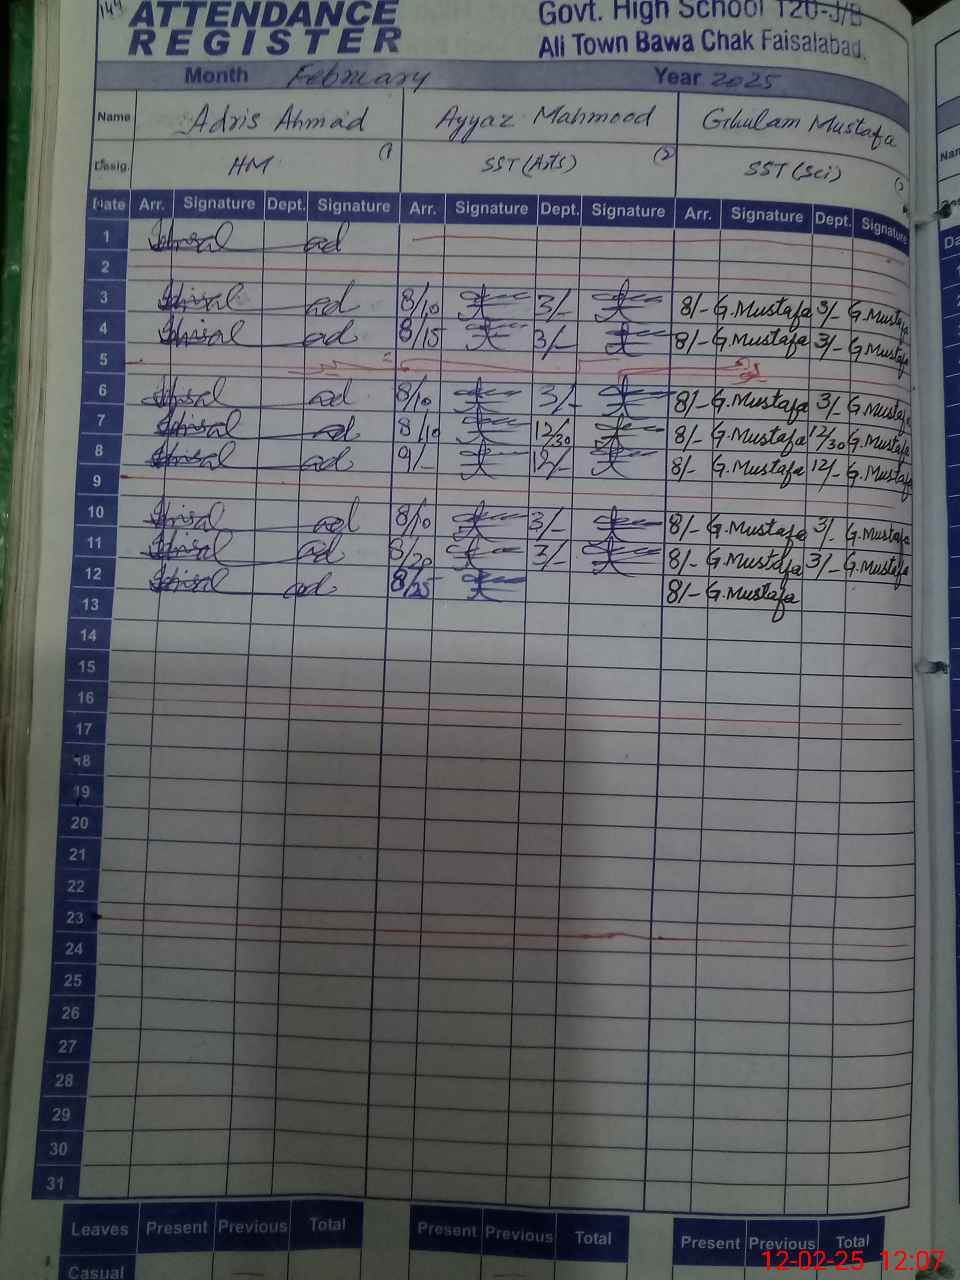 144
ATTENDANCE
REGISTER
Govt. High School 120-J/B
Ali Town Bawa Chak Faisalabad.
Month February Year 2025
Name Adris Ahmad Ayyaz Mahmood Ghulam Mustafa
Desig. HM (1) SST (Arts) (2) SST (Sci)
Date Arr. Signature Dept. Signature Arr. Signature Dept. Signature Arr. Signature Dept. Signature
1
2
3 8/10 3/- 8/- G.Mustafa 3/- G.Mustafa
4 8/15 3/- 8/- G.Mustafa 3/- G.Mustafa
5
6 8/10 3/- 8/- G.Mustafa 3/- G.Mustafa
7 8/10 12/30 8/- G.Mustafa 12/30 G.Mustafa
8 9/- 12/- 8/- G.Mustafa 12/- G.Mustafa
9
10 8/10 3/- 8/- G.Mustafa 3/- G.Mustafa
11 8/20 3/- 8/- G.Mustafa 3/- G.Mustafa
12 8/25 8/- G.Mustafa
13
14
15
16
17
18
19
20
21
22
23
24
25
26
27
28
29
30
31
Leaves Present Previous Total Present Previous Total Present Previous Total
Casual
12-02-25 12:07